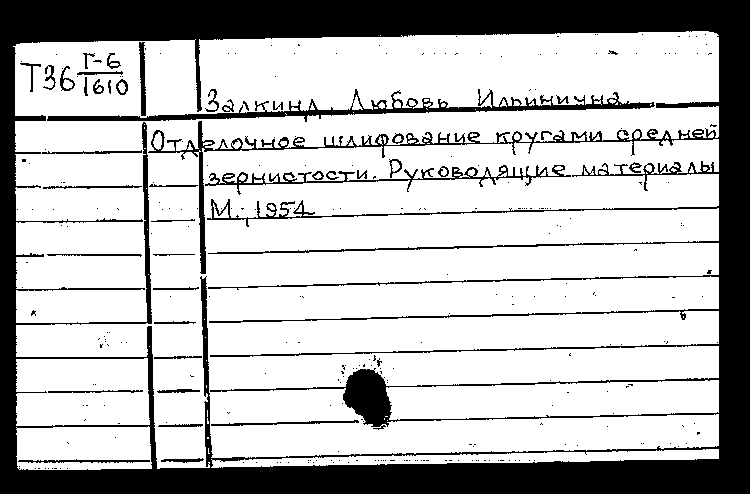 Т36 Г-6
1610
Залкинд, Любовь Ильинична.
Отделочное шлифование кругами средней
зернистости. Руководящие материалы
М., 1954